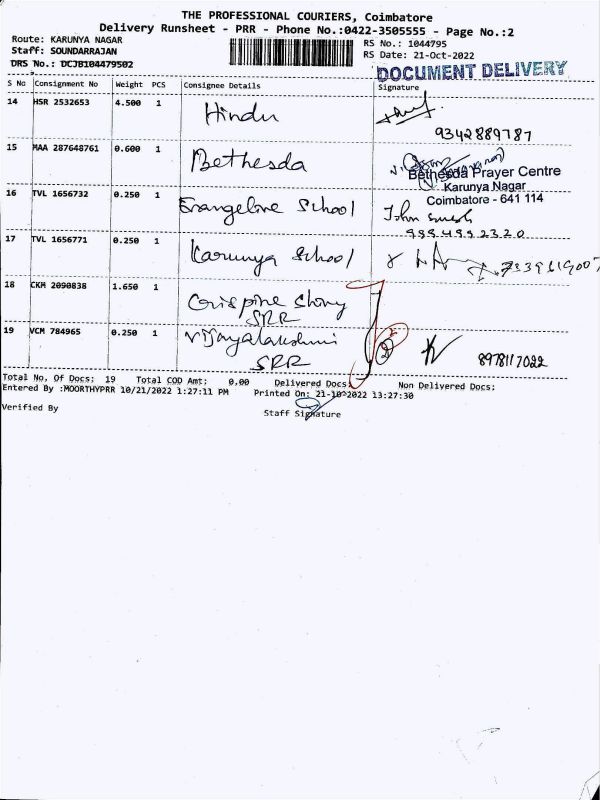 THE PROFESSIONAL COURIERS, Coimbatore
Delivery Runsheet - PRR - Phone No.:0422-3505555 - Page No.:2
Route: KARUNYA NAGAR
Staff: SOUNDARRAJAN
DRS No.: DCJB104479502
RS No.: 1044795
RS Date: 21-Oct-2022
DOCUMENT DELIVERY
S No Consignment No Weight PCS Consignee Details Signature
14 HSR 2532653 4.500 1 Hindu
9342889787
15 MAA 287648761 0.600 1 Bethesda
Bethesda Prayer Centre
Karunya Nagar
Coimbatore - 641 114
16 TVL 1656732 0.250 1 Evangeline School John
9994992320
17 TVL 1656771 0.250 1 Karunya School
18 CKM 2090838 1.650 1 Crispine Shiny
SRR
19 VCM 784965 0.250 1 Vijayalakshmi
SRR
2
8978117022
Total No. Of Docs: 19 Total COD Amt: 0.00 Delivered Docs: Non Delivered Docs:
Entered By :MOORTHYPRR 10/21/2022 1:27:11 PM Printed On: 21-10-2022 13:27:30
Verified By Staff Signature